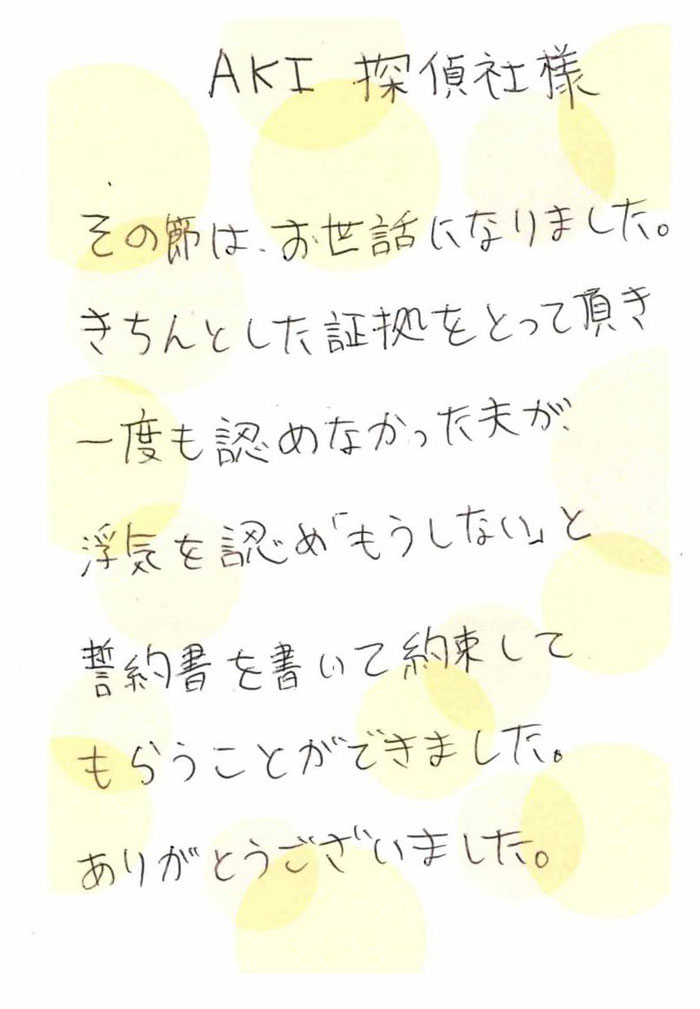 AKI 探偵社様
その節は、お世話になりました。
きちんとした証拠をとって頂き
一度も認めなかった夫が、
浮気を認め「もうしない」と
誓約書を書いて約束して
もらうことができました。
ありがとうございました。